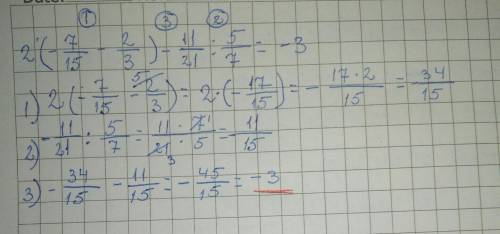 ① ③ ②
2·(-7/15 - 2/3) - 11/21 : 5/7 = -3
1) 2(-7/15 - 5 2/3) = 2·(-17/15) = - 17·2/15 = 34/15
2) - 11/21 : 5/7 = 11·7 1/21 3·5 = 11/15
3) - 34/15 - 11/15 = - 45/15 = -3